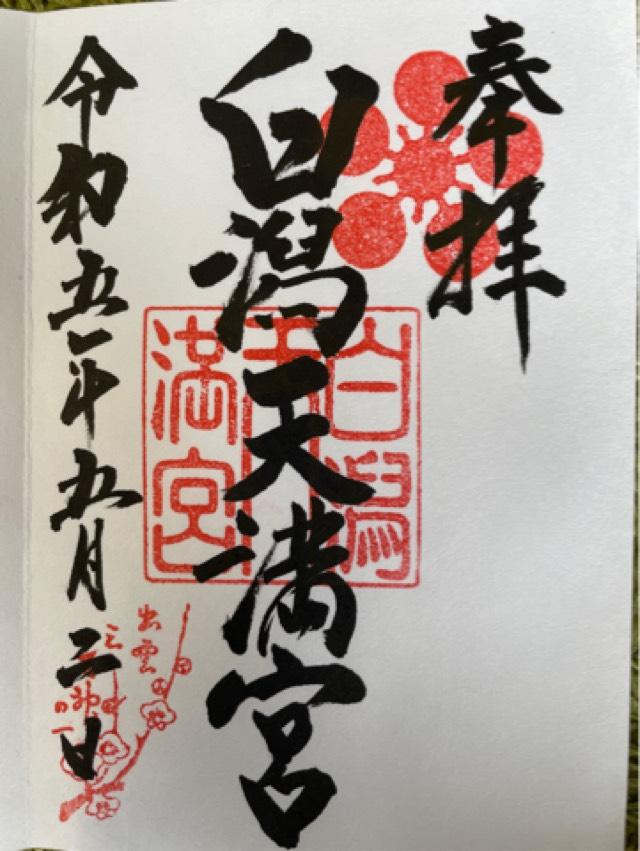 奉拝
白潟天満宮
白潟
天
満宮
令和五年五月二日
出雲
三
の一